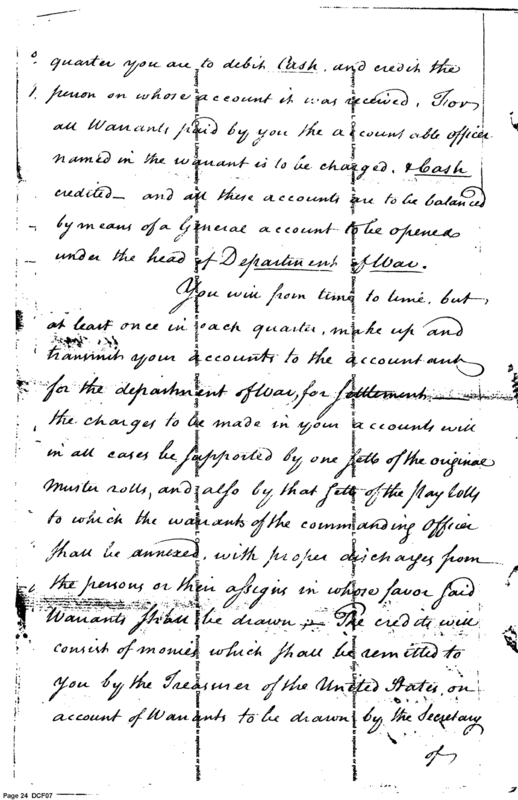 quarter you are to debit Cash, and credit the
person on whose account it was received. For
all Warrants paid by you the accountable officer
named in the warrant is to be charged, & Cash
credited — and all these accounts are to be balanced
by means of a General account to be opened
under the head of Department of War.
You will from time to time, but,
at least once in each quarter, make up and
transmit your accounts to the accountant
for the department of War, for settlement
the charges to be made in your accounts will
in all cases be supported by one sett of the original
muster rolls, and also by that sett of the Pay Rolls
to which the warrants of the commanding Officer
shall be annexed, with proper discharges from
the persons or their assigns in whose favor said
Warrants shall be drawn ;— The credits will
consist of monies which shall be remitted to
you by the Treasurer of the United States, on
account of Warrants to be drawn by the Secretary
of
Page 24 DCF07